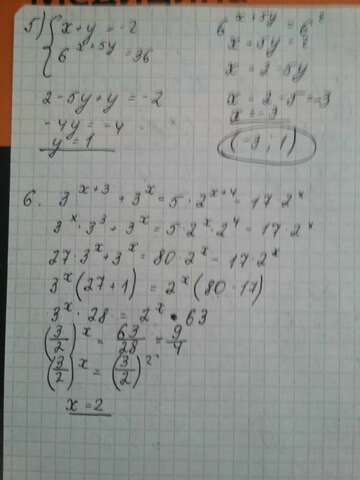 5) { x + y = -2
6^{x+5y} = 36
2 - 5y + y = -2
-4y = -4
y = 1
6^{x+5y} = 6^2
x + 5y = 2
x = 2 - 5y
x = 2 - 5 = -3
x = -3
(-3; 1)
6. 3^{x+3} + 3^x = 5 · 2^{x+4} - 17 · 2^x
3^x · 3^3 + 3^x = 5 · 2^x · 2^4 - 17 · 2^x
27 · 3^x + 3^x = 80 · 2^x - 17 · 2^x
3^x (27 + 1) = 2^x (80 - 17)
3^x · 28 = 2^x · 63
(3/2)^x = 63/28 = 9/4
(3/2)^x = (3/2)^2
x = 2